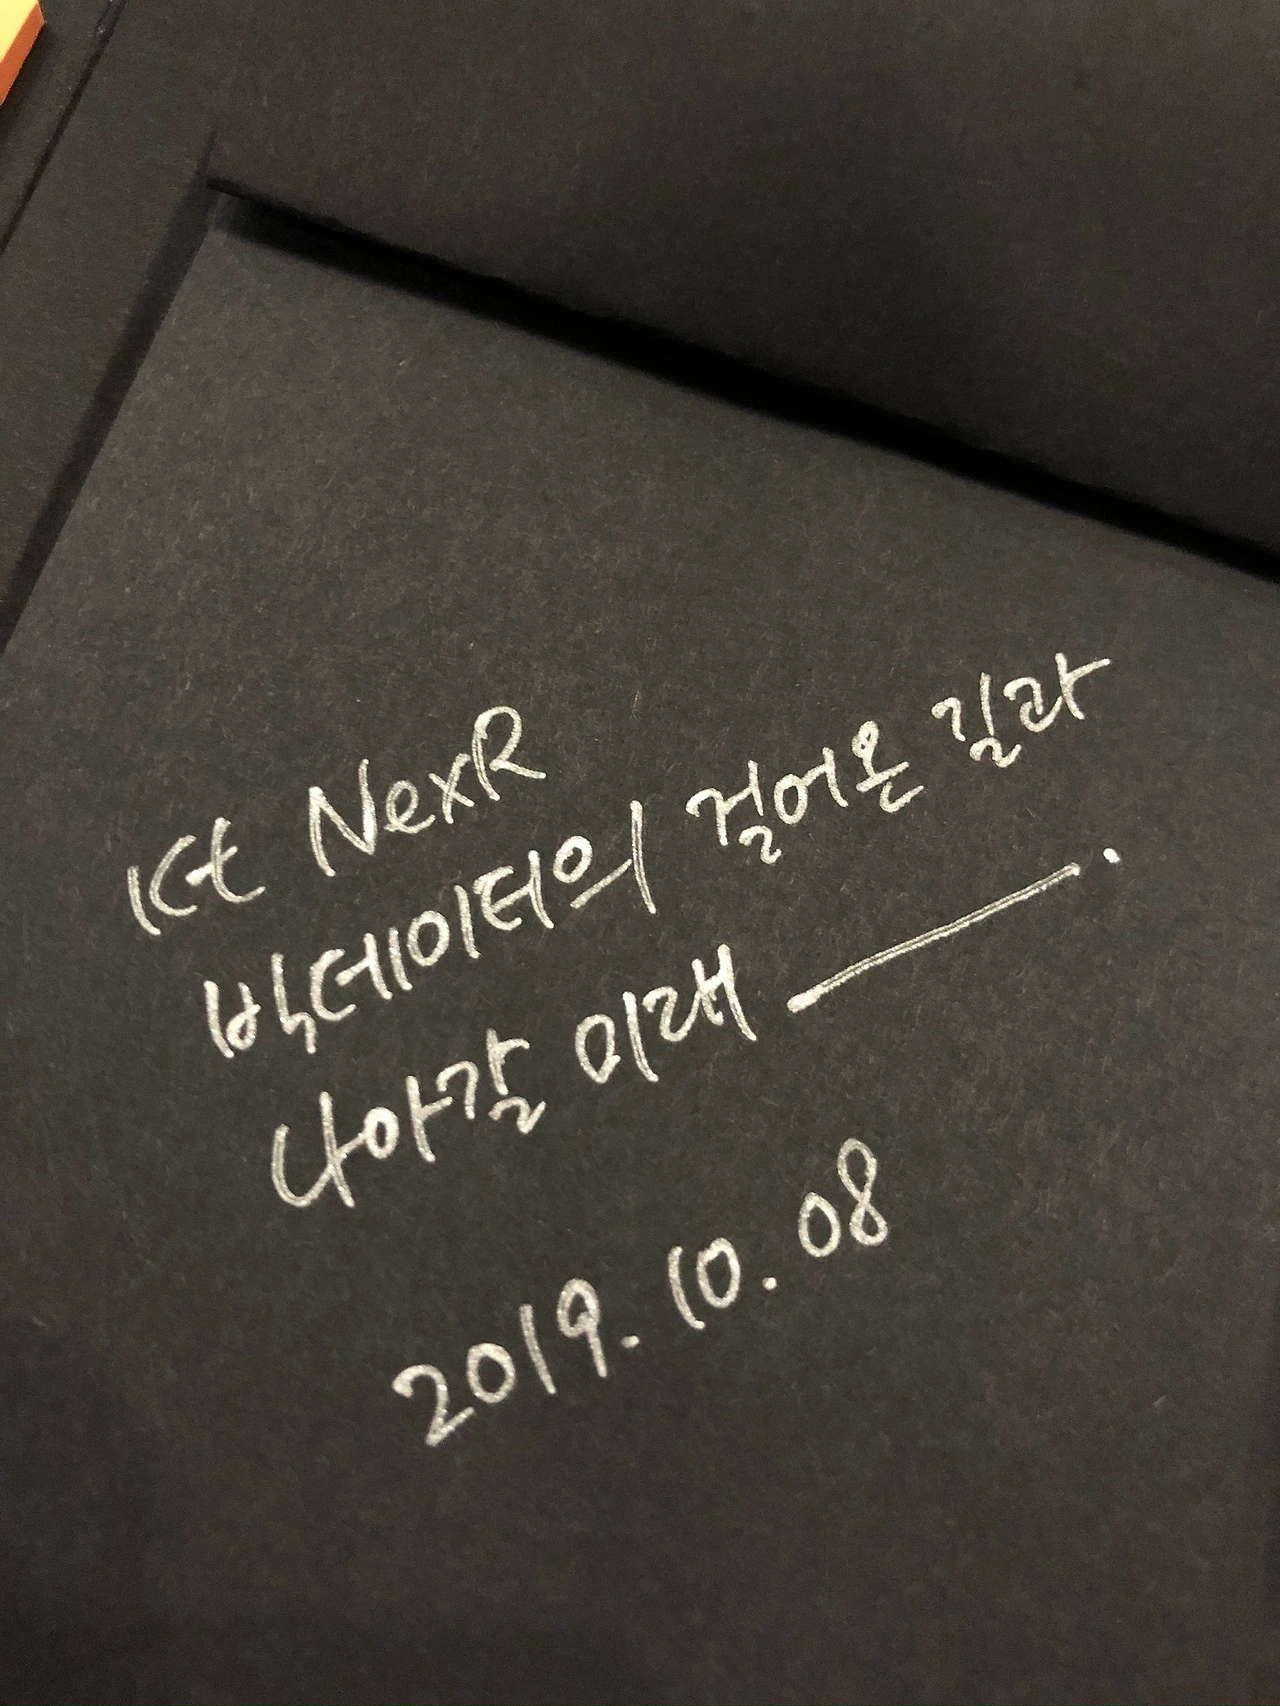 kt NexR
빅데이터의 걸어온 길과
나아갈 미래 ―.
2019. 10. 08